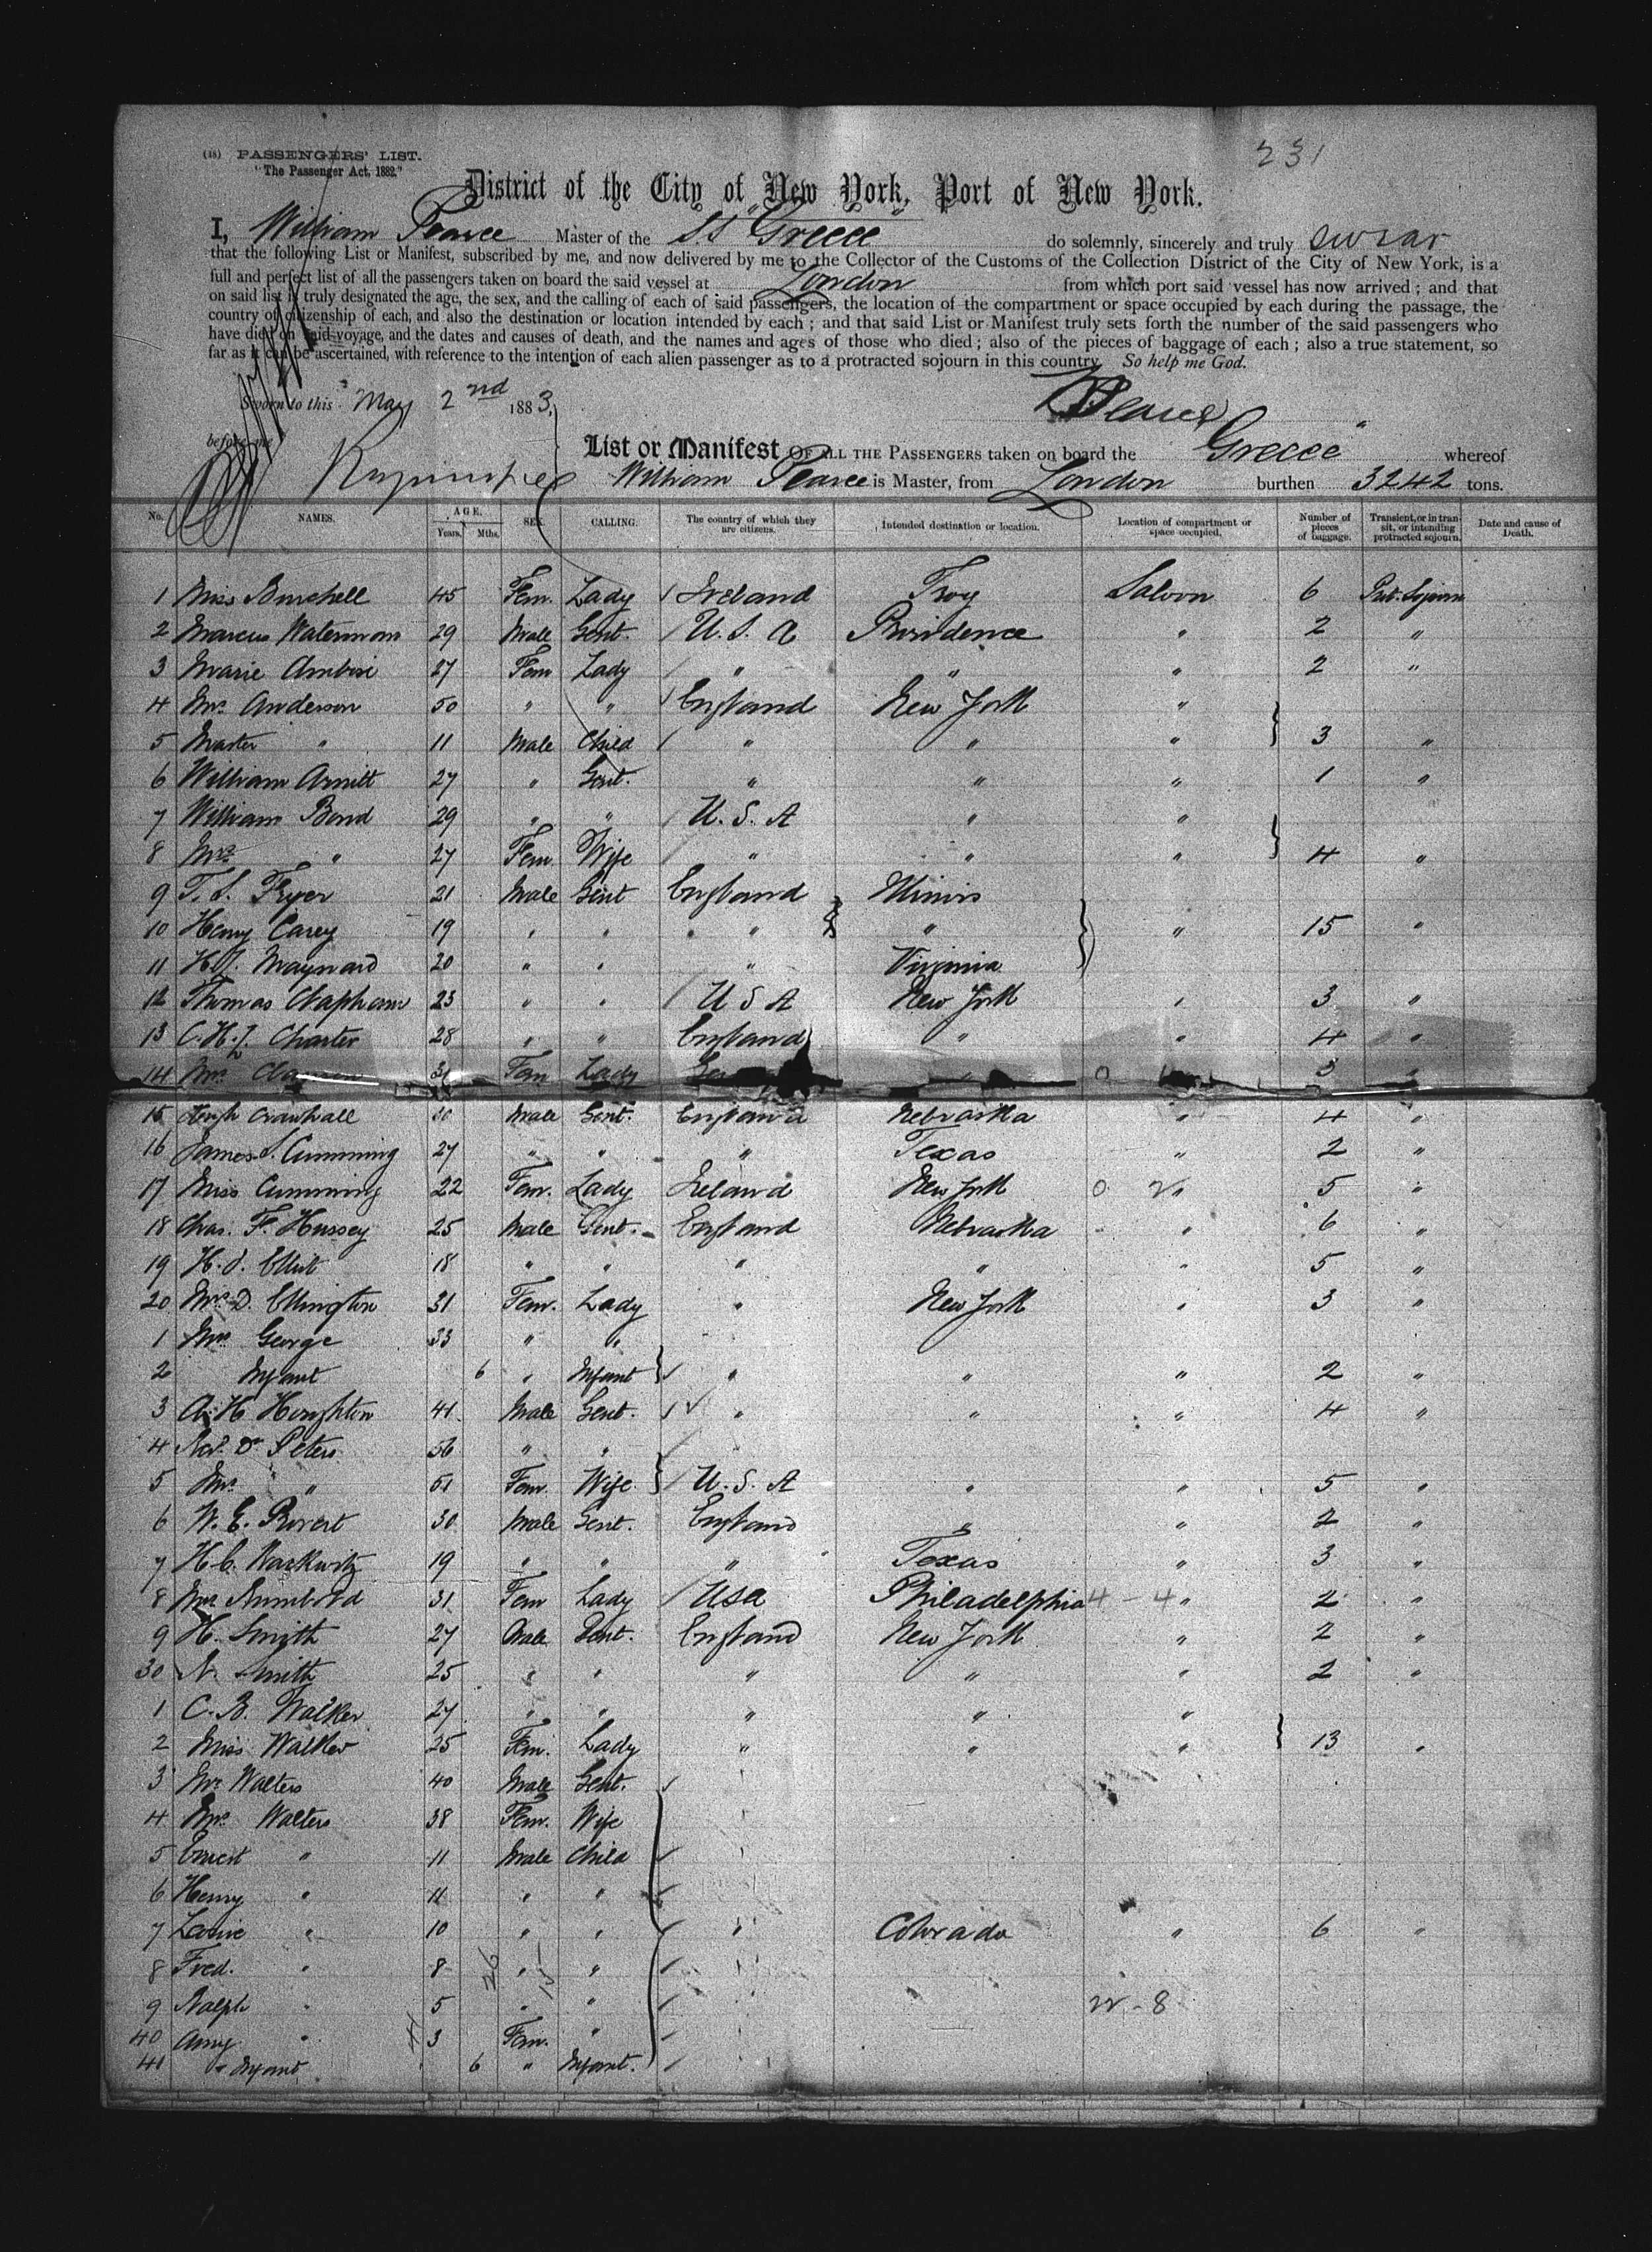 231
(18) PASSENGERS' LIST.
"The Passenger Act, 1882."
District of the City of New York, Port of New York.
I, William Pearce Master of the S.S "Greece" do solemnly, sincerely and truly swear
that the following List or Manifest, subscribed by me, and now delivered by me to the Collector of the Customs of the Collection District of the City of New York, is a
full and perfect list of all the passengers taken on board the said vessel at London from which port said vessel has now arrived ; and that
on said list is truly designated the age, the sex, and the calling of each of said passengers, the location of the compartment or space occupied by each during the passage, the
country of citizenship of each, and also the destination or location intended by each ; and that said List or Manifest truly sets forth the number of the said passengers who
have died on said voyage, and the dates and causes of death, and the names and ages of those who died ; also of the pieces of baggage of each ; also a true statement, so
far as it can be ascertained, with reference to the intention of each alien passenger as to a protracted sojourn in this country. So help me God.
Sworn to this May 2nd 1883,
W Pearce
before me
List or Manifest OF ALL THE PASSENGERS taken on board the Greece whereof
William Pearce is Master, from London burthen 3242 tons.
No. NAMES. AGE. Years. Mths. SEX. CALLING. The country of which they are citizens. Intended destination or location. Location of compartment or space occupied. Number of pieces of baggage. Transient, or in transit, or intending protracted sojourn. Date and cause of Death.
1 Miss Burchell 45 Fem. Lady Ireland Troy Saloon 6 Prot. Sojourn
2 Marcus Waterman 29 Male Gent. U.S.A Providence " 2 "
3 Marie 27 Fem Lady " " " 2 "
4 Mrs Anderson 50 " " England New York "
5 Master " 11 Male Child " " " 3 "
6 William 27 " Gent. " " " 1 "
7 William Bond 29 " " U.S.A " "
8 Mrs " 27 Fem Wife " " " 4 "
9 T. S. Fryer 21 Male Gent England Illinois
10 Henry Carey 19 " " " " " 15 "
11 H. J. Maynard 20 " " " Virginia
12 Thomas Clapham 23 " " U S A New York " 3 "
13 C. H. J. Charter 28 " " England " " 4 "
14 Mrs 31 Fem Lady " 3 "
15 Hugh Crawhall 20 Male Gent. England Nebraska " 4 "
16 James S. Cumming 27 " " " Texas " 2 "
17 Miss Cumming 22 Fem. Lady Ireland New York " 5 "
18 Chas. F. Hussey 25 Male Gent. England Nebraska " 6 "
19 H. S. 18 " " " " " 5 "
20 Mrs D. Ellington 31 Fem. Lady " New York " 3 "
1 Mrs George 33 " "
2 Infant 6 " Infant " " " 2 "
3 A. H. Houghton 41 Male Gent. " " " 4 "
4 Revd Dr Peters 56 " "
5 Mrs " 51 Fem. Wife U.S.A " " 5 "
6 W. E. 30 Male Gent. England " " 2 "
7 H. C. 19 " " " Texas " 3 "
8 Mrs 31 Fem Lady USA Philadelphia 4 - 4 " 2 "
9 H. Smith 27 Male Gent. England New York " 2 "
30 N. Smith 25 " " " " " 2 "
1 C. B. Walker 27 " " " " "
2 Miss Walker 25 Fem. Lady " " " 13 "
3 Mr Walters 40 Male Gent.
4 Mrs Walters 38 Fem. Wife
5 Ernest " 11 Male Child
6 Henry " 11 " "
7 " 10 " " " Colorado " 6 "
8 Fred. " 8 " "
9 Ralph " 5 " "
40 Amy " 3 Fem. "
41 " Infant 6 " Infant.